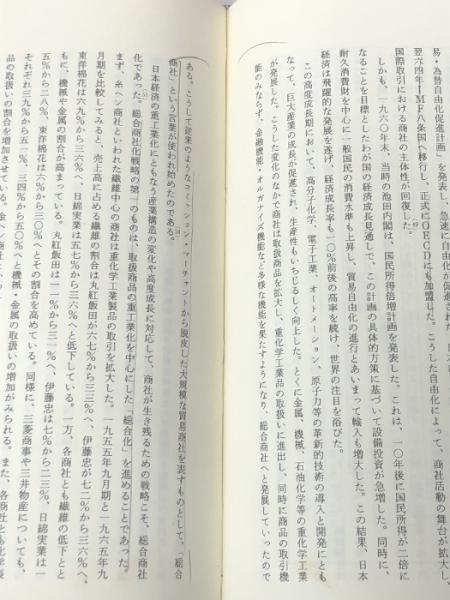 易・為替自由化促進計画」を発表し、急速に自由化が促進された。
翌六四年IMF八条国へ移行し、正式にOECDにも加盟した。こうした自由化によって、商社活動の舞台が拡大し、
国際取引における商社の主体性が回復した。
しかも、一九六〇年末、当時の池田内閣は、国民所得倍増計画を発表した。これは、一〇年後に国民所得が二倍に
なることを目標としたわが国の経済成長見通しで、この計画の具体的方策に基づいて設備投資が急増した。同時に、
耐久消費財を中心に一般国民の消費水準も上昇し、貿易自由化の進行とあいまって輸入も増大した。この結果、日本
経済は飛躍的な発展を遂げ、経済成長率も一〇％前後の高率を続け、世界の注目を浴びた。
この高度成長期において、高分子化学、電子工業、オートメーション、原子力等の革新的技術の導入と開発にとも
なって、巨大産業の成長が促進され、生産性もいちじるしく向上した。とくに金属、機械、石油化学等の重化学工業
が発展した。こうした変化のなかで商社は取扱商品を拡大し、重化学工業品の取扱いに進出し、同時に商品の取引機
能のみならず、金融機能・オルガナイズ機能など多様な機能を果たすようになり、総合商社へと発展していったので
ある。こうして従来のようなコミッション・マーチャントから脱皮した大規模な貿易商社を表すものとして、「総合
商社」という言葉が使われ始めたのである。
日本経済の重工業化にともなう産業構造の変化や高度成長に対応して、商社が生き残るための戦略こそ、総合商社
化であった。総合商社化戦略の第一のものは、取扱商品の重工業化を中心にした「総合化」を進めることであった。
まず、糸ヘン商社といわれた繊維中心の商社は重化学工業製品の取引を拡大した。一九五五年九月期と一九六五年九
月期を比較してみると、売上高に占める繊維の割合は丸紅飯田が六七％から三三％へ、伊藤忠が七二％から三六％へ、
東洋棉花は六九％から三〇％へ、日綿実業は五七％から三六％へと低下している。一方、各商社とも繊維の低下とと
もに、機械や金属の割合が高まっている。丸紅飯田は一二％から三一％へ、伊藤忠は七％から二三％、日綿実業は一
五％から二八％、東洋棉花は六％から三〇％へとその割合を高めている。同様に、三菱商事や三井物産についても、
それぞれ三九％から五一％、三四％から五〇％へと機械・金属の取扱いの増加がみられる。また、各商社とも化学
品の取扱いの割合を増加させている。